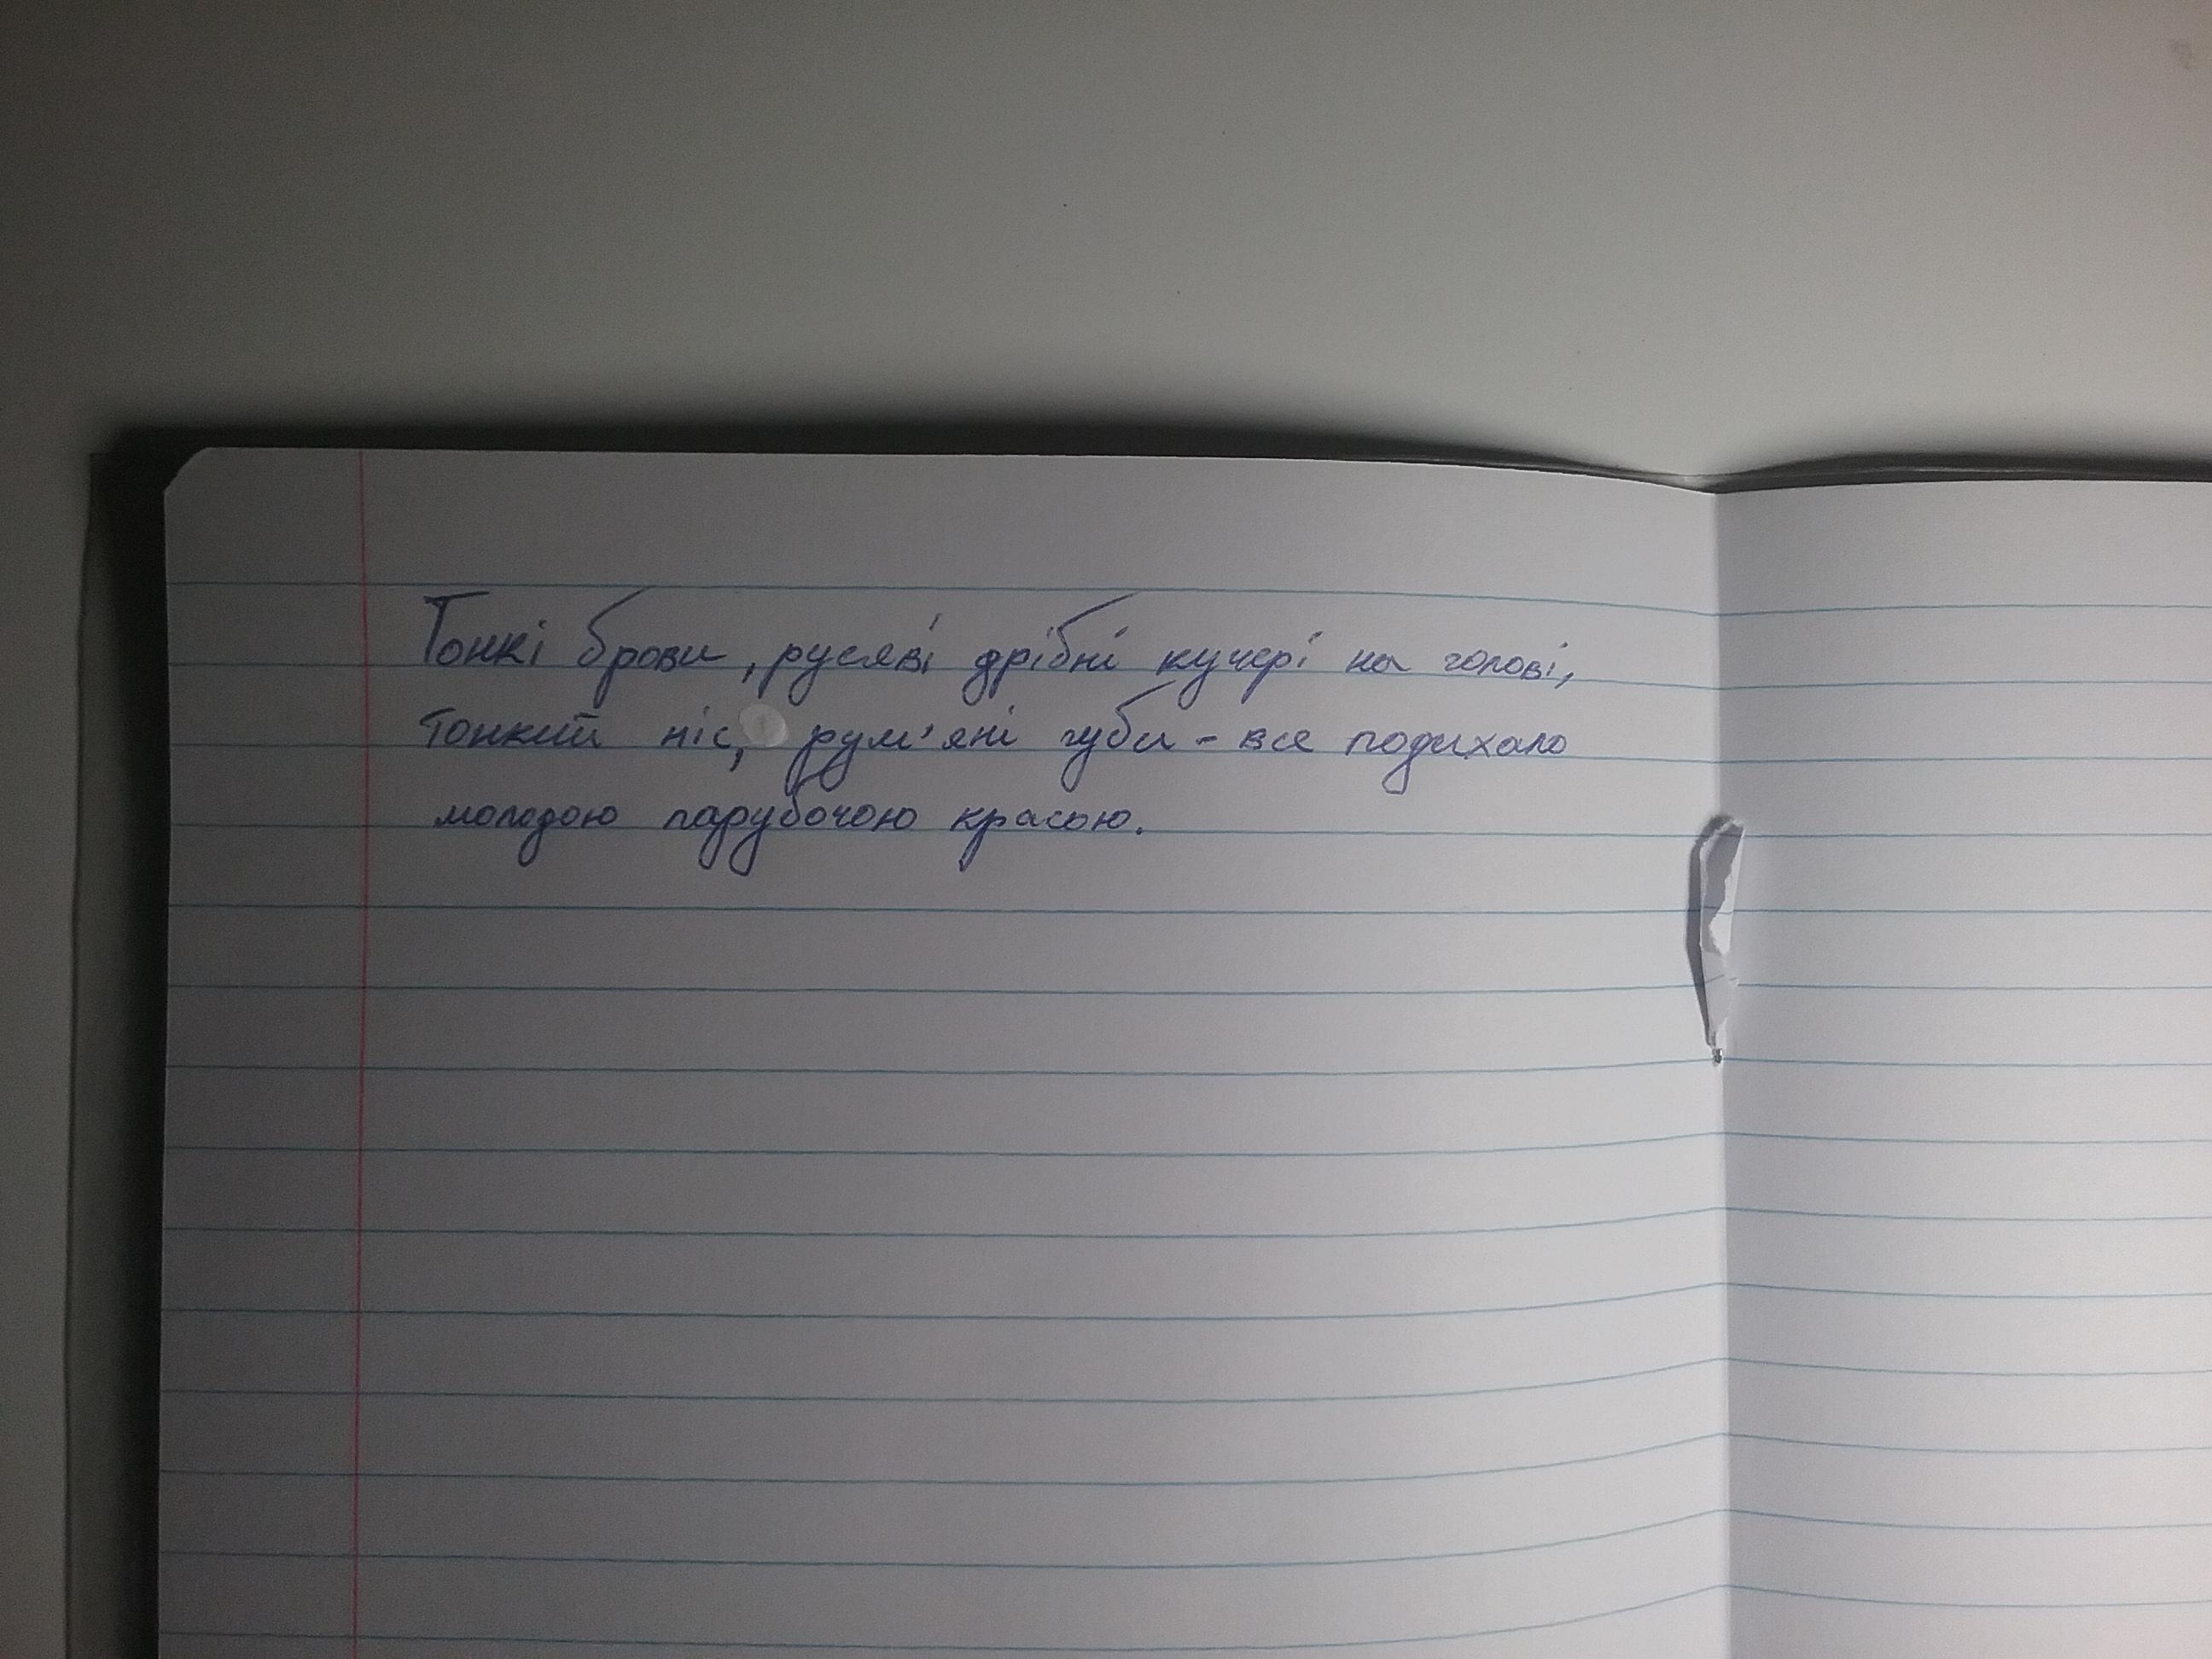 Тонкі брови, русяві дрібні кучері на голові,
тонкий ніс, рум'яні губи - все подихало
молодою парубочою красою.